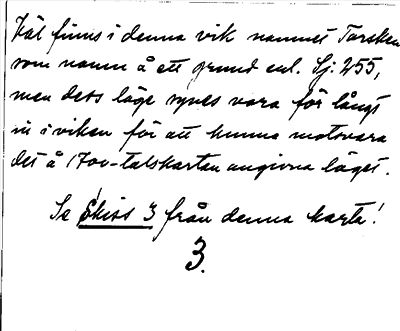 Väl finns i denna vik namnet Torsken
som namn å ett grund enl. Sj. 255,
men dets läge synes vara för långt
in i viken för att kunna motsvara
det å 1700-talskartan angivna läget.
Se Skiss 3 från denna karta!
3.